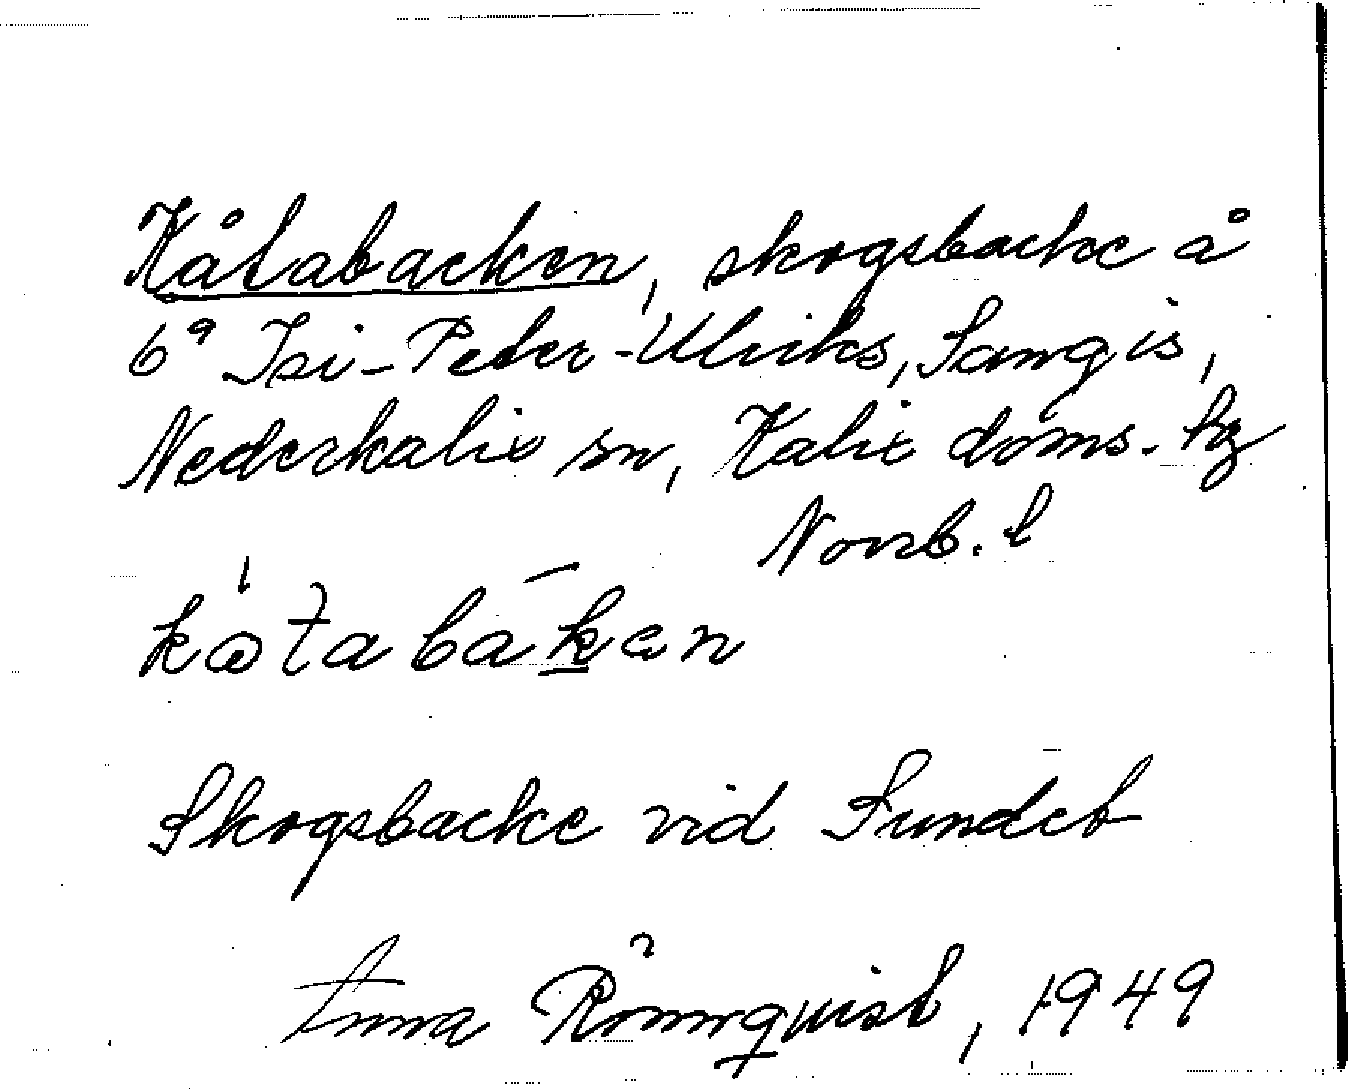 Kåtabacken, skogsbacke å
6⁹ Isi-Peter-Ulriks, Sangis,
Nederkalix sn, Kalix doms. hg
Norrb. l
kåtabaken
Skogsbacke vid Sundet
Anna Rönnquist, 1949